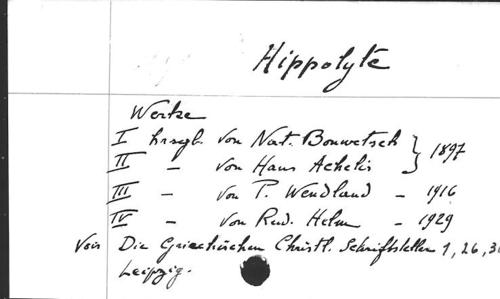 Hippolyte
Werke
I hrsgb. von Nat. Bonwetsch
II - von Hans Achelis } 1897
III - von P. Wendland - 1916
IV - von Rud. Helm - 1929
Voir Die Griechischen Christl. Schriftsteller 1, 26, 3
Leipzig.